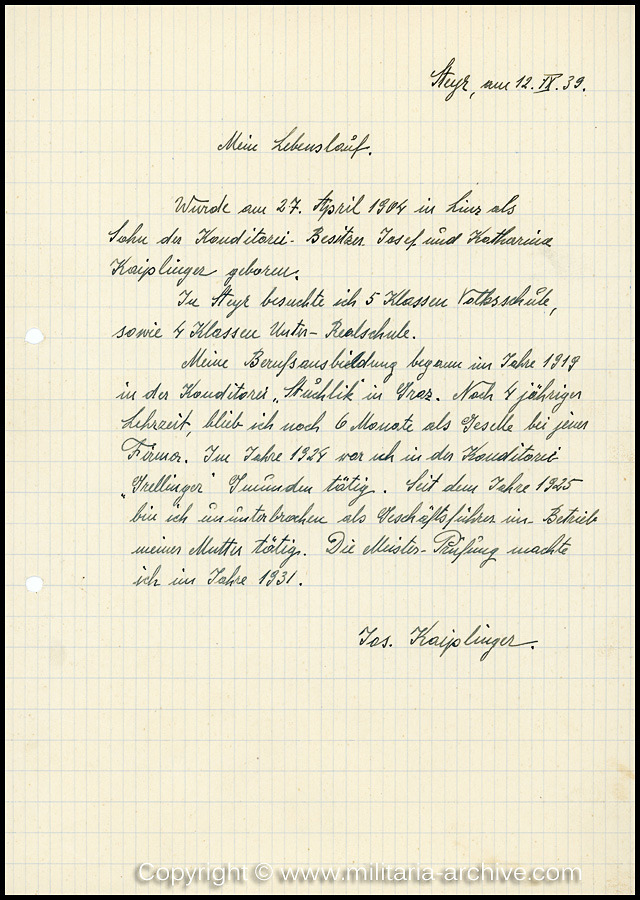 Steyr, am 12. IX. 39.
Mein Lebenslauf.
Wurde am 27. April 1904 in Linz als
Sohn der Konditorei-Besitzer Josef und Katharina
Kaiplinger geboren.
In Steyr besuchte ich 5 Klassen Volksschule,
sowie 4 Klassen Unter-Realschule.
Meine Berufsausbildung begann im Jahre 1919
in der Konditorei „Stuchlik" in Graz. Nach 4 jähriger
Lehrzeit, blieb ich noch 6 Monate als Geselle bei jener
Firma. Im Jahre 1924 war ich in der Konditorei
„Grellinger" Gmunden tätig. Seit dem Jahre 1925
bin ich ununterbrochen als Geschäftsführer im Betrieb
meiner Mutter tätig. Die Meister-Prüfung machte
ich im Jahre 1931.
Jos. Kaiplinger.
Copyright © www.militaria-archive.com